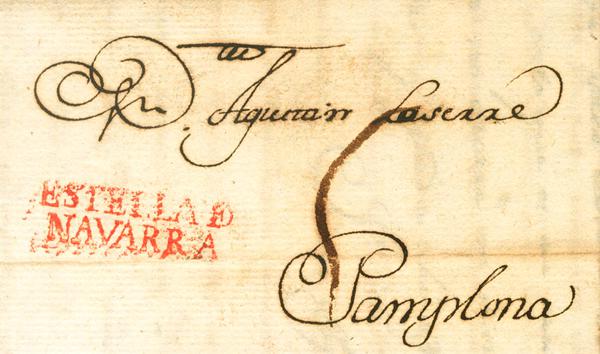 Sr. Dn. Agustin Laserre
5
ESTELLA D
NAVARRA
Pamplona